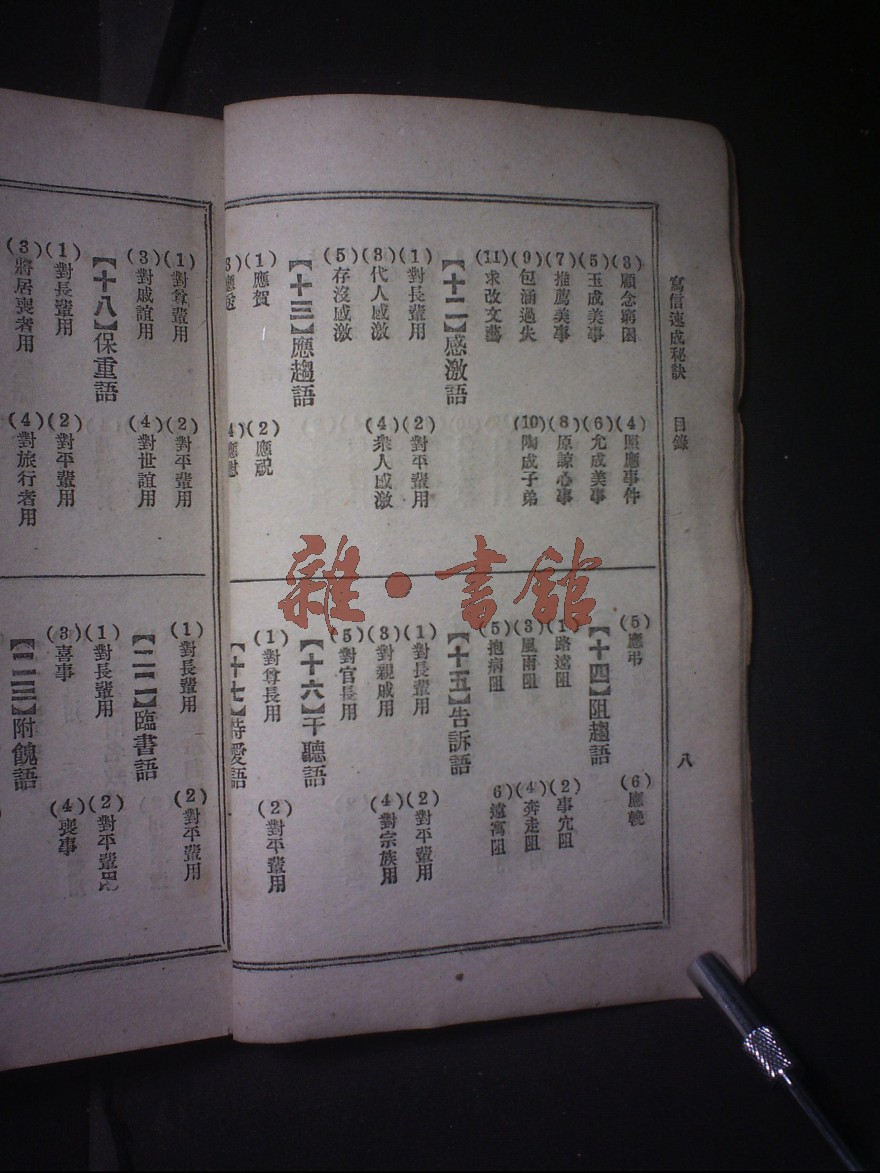 寫信速成秘訣 目錄 八
(3)顧念窮困 (4)照應事件
(5)玉成美事 (6)允成美事
(7)推薦美事 (8)原諒心事
(9)包涵過失 (10)陶成子弟
(11)求改文藝
【十二】感激語
(1)對長輩用 (2)對平輩用
(3)代人感激 (4)衆人感激
(5)存沒感激
【十三】應趨語
(1)應賀 (2)應祝
(5)應弔 (6)應輓
【十四】阻趨語
(1)路遠阻 (2)事冗阻
(3)風雨阻 (4)奔走阻
(5)抱病阻 (6)遠寓阻
【十五】告訴語
(1)對長輩用 (2)對平輩用
(3)對親戚用 (4)對宗族用
(5)對官長用
【十六】干聽語
(1)對尊長用 (2)對平輩用
【十七】恃愛語
(1)對尊輩用 (2)對平輩用
(3)對戚誼用 (4)對世誼用
【十八】保重語
(1)對長輩用 (2)對平輩用
(3)將居喪者用 (4)對旅行者用
(1)對長輩用 (2)對平輩用
【二二】臨書語
(1)對長輩用 (2)對平輩用
(3)喜事 (4)喪事
【二三】附餽語
雜·書館